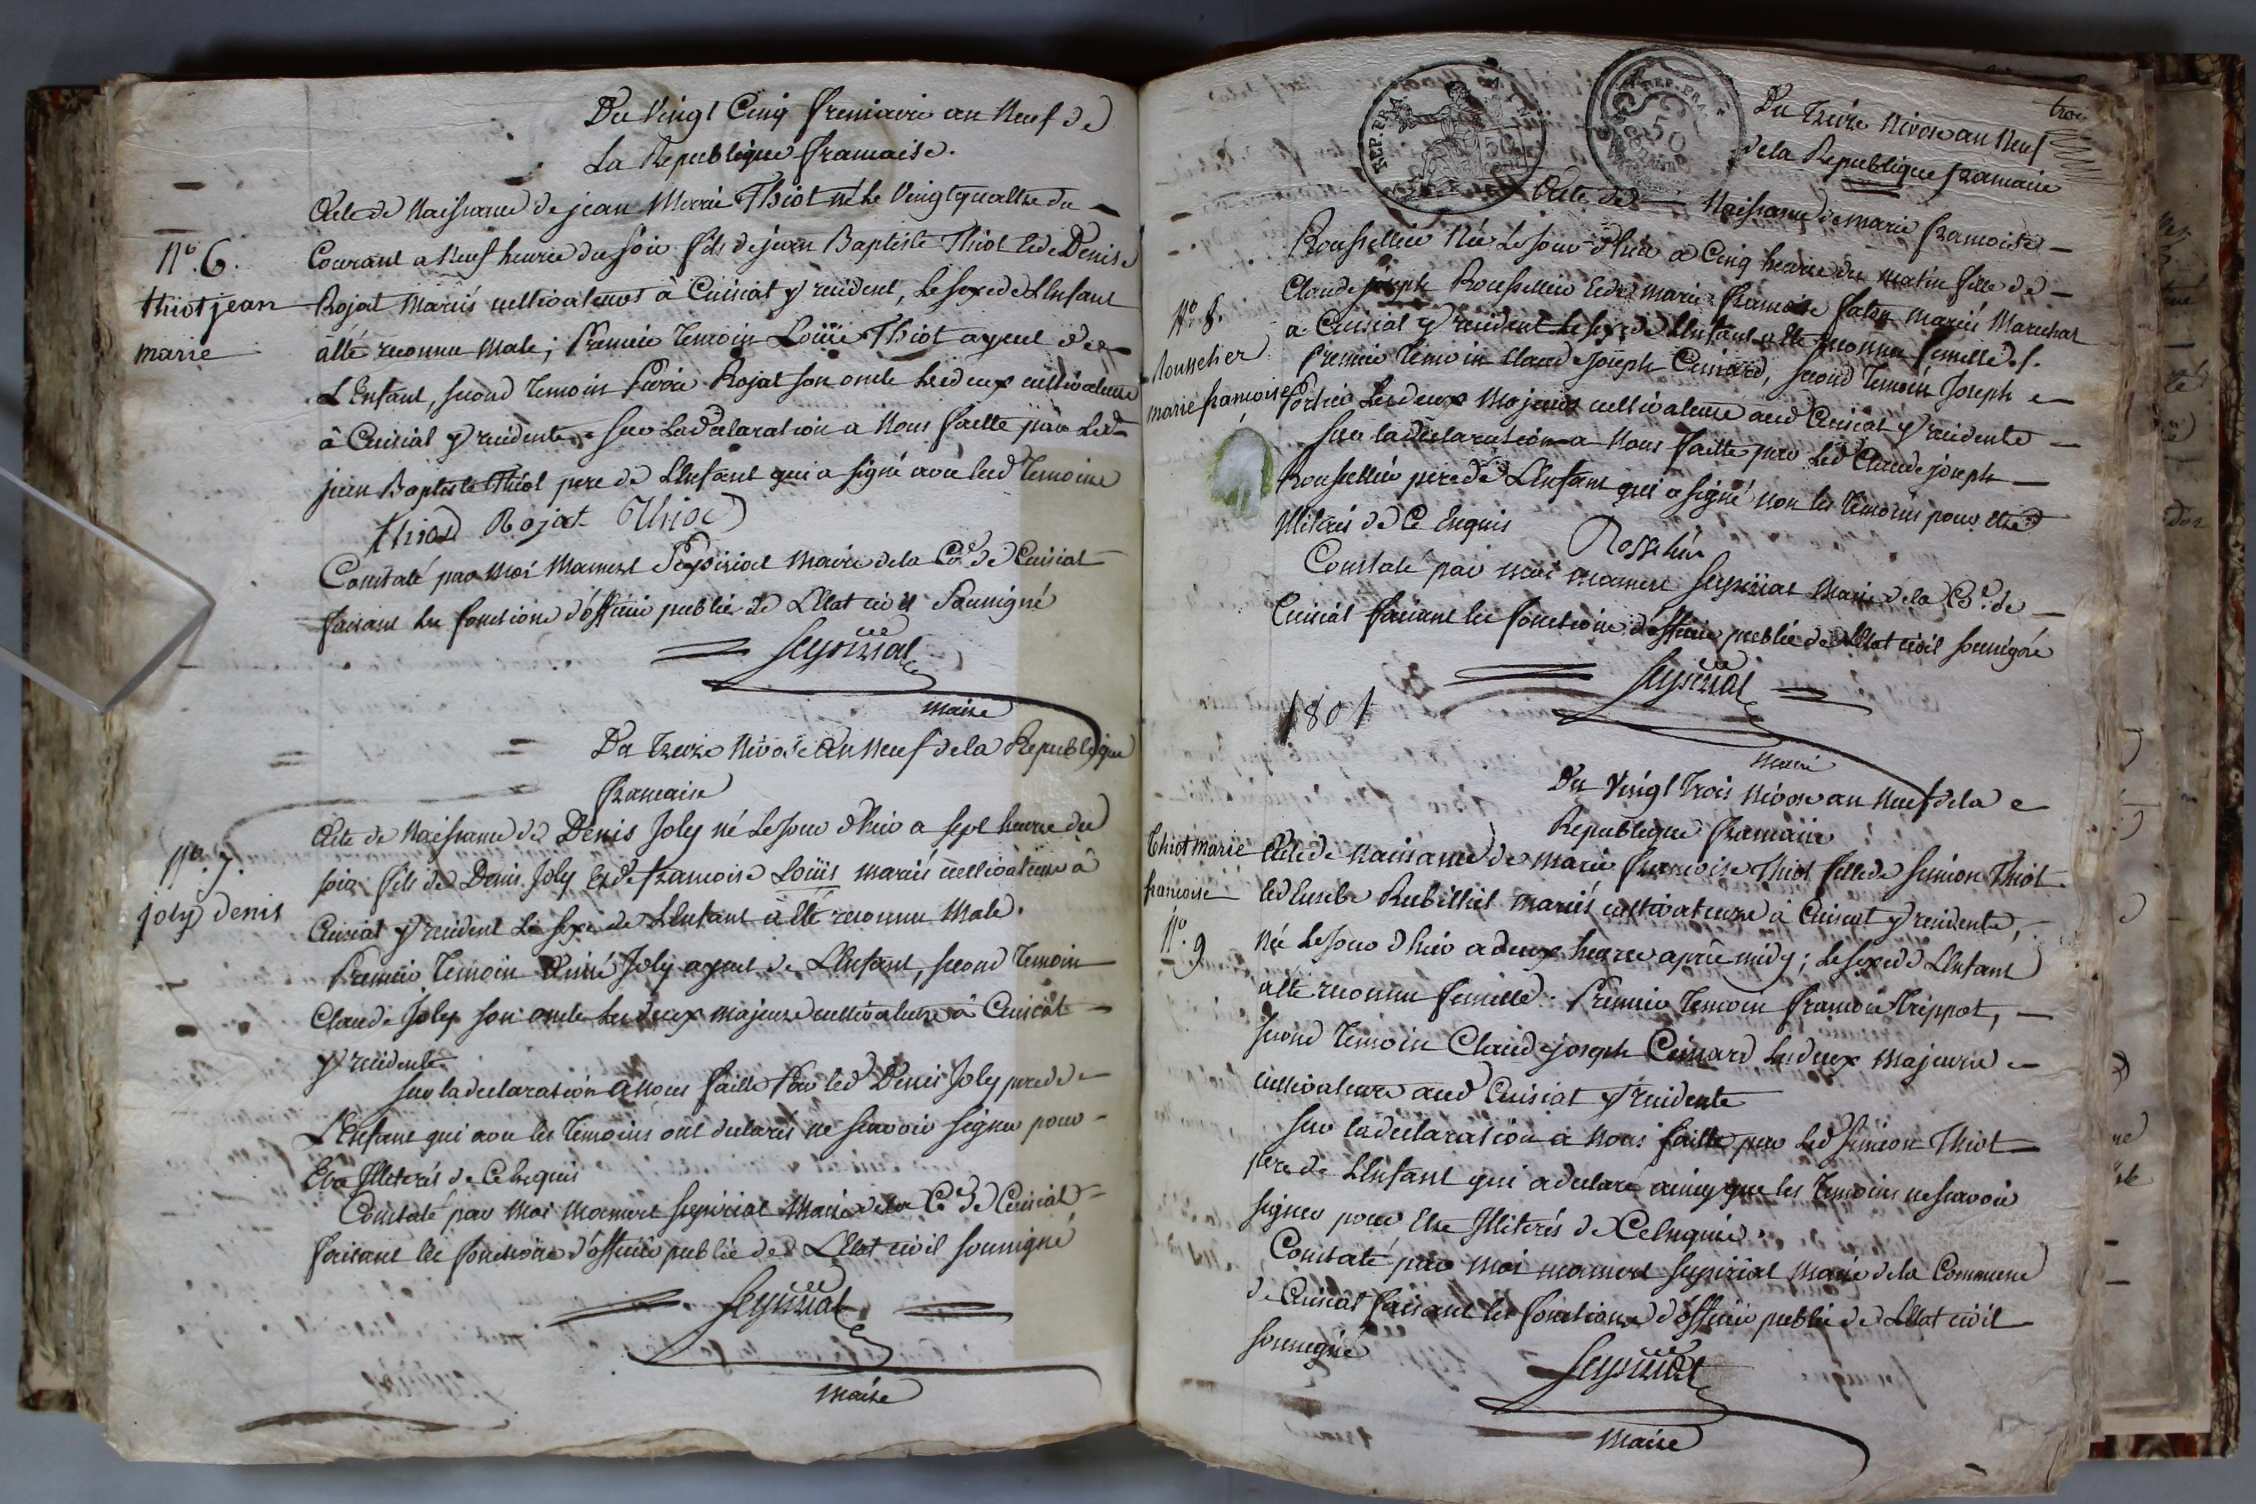 Du Vingt Cinq frimaire an Neuf de
La Republique francaise.
Acte de Naissance de jean Marie Thiot né le Vingtquattre du
N°. 6.
thiot jean
marie
Courant a Neuf heures du soir fils de jean Baptiste Thiot et de Denise
Rojat Mariés cultivateurs à Cuisiat y resident, le sexe de L'Enfant
a été reconnu Male; Premier Temoin Loüis Thiot ayeul de
L'Enfant, second Temoin Pierre Rojat son oncle les deux cultivateurs
à Cuisiat y residents sur la declaration a Nous faitte par led
jean Baptiste Thiot pere de L'Enfant qui a signé avec lesd Temoins
thiod Rojat Thiod
Constaté par Moi Mamert Seyssiat Maire de la Cõe de Cuisiat
faisant les fonctions d'officier public de L'Etat civil Soussigné
Maire
Du Treize Nivose an Neuf de la Republique
francaise
N°. 7.
joly denis
Acte de Naissance de Denis Joly né Le Jour d'hier a sept heures du
soir fils de Denis Joly et de francoise Loüis mariés cultivateurs à
Cuisiat y resident Le sexe de L'Enfant a été reconnu Male.
Premier Temoin Joly ayeul de L'Enfant, second Temoin
Claude Joly son oncle les deux majeurs cultivateurs à Cuisiat
y residents
sur la declaration a Nous faitte Par led Denis Joly pere de
L'Enfant qui avec les Temoins ont declarés ne scavoir signer pour
Etre Illiterés de ce Enquis
Constaté par Moi Mamert Seyssiat Maire de la Cõe de Cuisiat
faisant les fonctions d'officier public de L'Etat civil soussigné
Maire
REP. FRA.
REP. FRA.
50
trois
Du Treize Nivose an Neuf
de la Republique francaise
Acte de Naissance de marie francoise
N°. 8.
Rousselier
marie francoise
Roussellier Née Le Jour d'hier a Cinq heures du matin fille de
Claude joseph Roussellier et de marie francoise mariés Marechal
a Cuisiat y resident le sexe de L'Enfant a été reconnu femelle.
Premier Temoin Claude Joseph Cuinard, second Temoin Joseph
les deux Majeurs cultivateurs aud Cuisiat y residents
sur la declaration a Nous faitte par led Claude joseph
Roussellier pere de L'Enfant qui a signé non les Temoins pour etre
Illiterés de ce Enquis
Constaté par moi Mamert Seyssiat Maire de la Cõe de
Cuisiat faisant les fonctions d'officier public de L'Etat civil soussigné
1801
Maire
Du Vingt Trois Nivose an Neuf de la
Republique francaise
Thiot marie
francoise
N°. 9
Acte de Naissance de marie francoise Thiot fille de Simeon Thiot
mariés cultivateurs à Cuisiat y residents,
Née Le Jour d'hier a deux heures après midy; le sexe de L'Enfant
a été reconnu femelle. Premier Temoin francois Trippot,
second Temoin Claude joseph Cuinard les deux Majeurs
cultivateurs aud Cuisiat y residents
sur la declaration à Nous faitte par led Simeon Thiot
pere de L'Enfant qui a declaré ainsy que les Temoins ne scavoir
signer pour Etre Illiterés de Ce Enquis.
Constaté par Moi Mamert Seyssiat Maire de la Commune
de Cuisiat faisant les fonctions d'officier public de L'Etat civil
soussigné
Maire